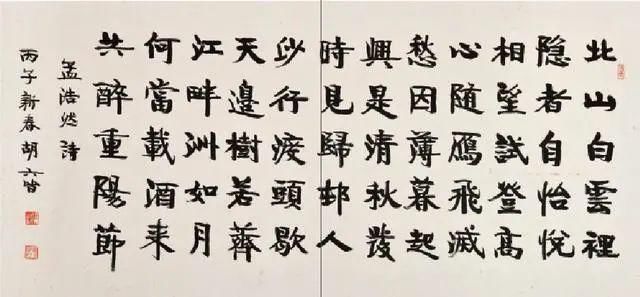 北山白雲裡
隐者自怡悦
相望試登高
心随鴈飛滅
愁因薄暮起
興是清秋發
時見歸邨人
沙行渡頭歇
天邊樹若薺
江畔洲如月
何當載酒来
共醉重陽節
孟浩然詩
丙子新春胡六皆